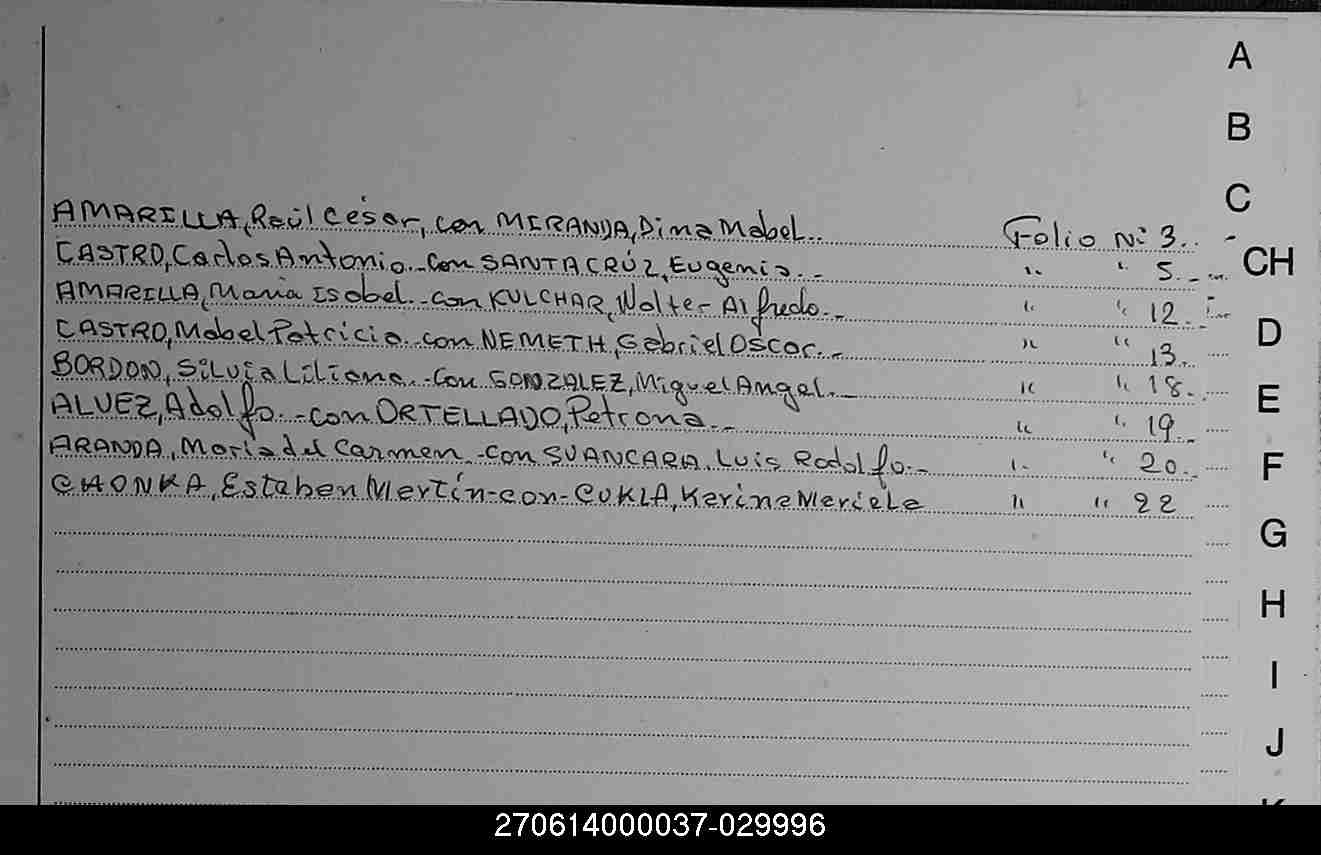 AMARILLA, Raúl César, con MIRANDA, Dina Mabel.. Folio Nº 3..
CASTRO, Carlos Antonio.-con SANTACRÚZ, Eugenia.- " " 5.-
AMARILLA, Maria Isabel.-con KULCHAR, Walter Alfredo.- " " 12.-
CASTRO, Mabel Patricia.-con NEMETH, Gabriel Oscar.- " " 13.-
BORDON, Silvia Liliana.-con GONZALEZ, Miguel Angel.- " " 18.-
ALVEZ, Adolfo.-con ORTELLADO, Petrona.- " " 19.-
ARANDA, Maria del Carmen.-con SVANCARA, Luis Rodolfo.- " " 20.-
CHONKA, Estaben Martín-con-CUKLA, Karina Mariela " " 22
A
B
C
CH
D
E
F
G
H
I
J
270614000037-029996